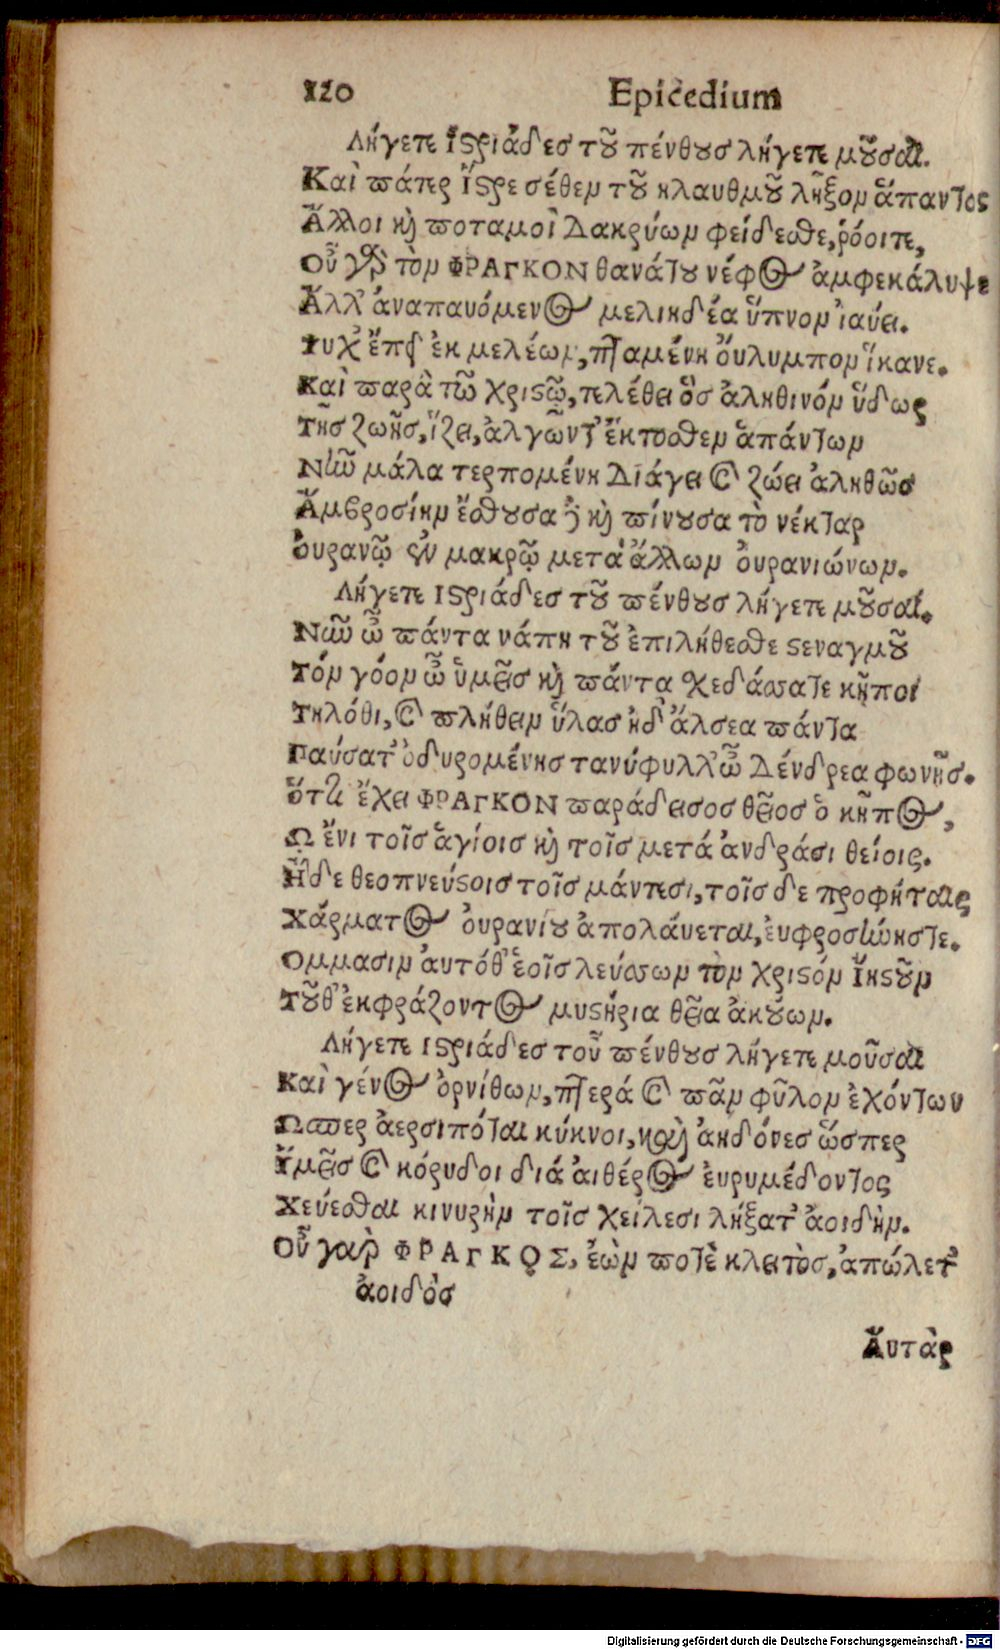 120 Epicedium
Λήγετε ἰστριάδες τοῦ πένθους λήγετε μοῦσαι.
Καὶ πάτερ ἴστρε σέθεν τοῦ κλαυθμοῦ λῆξον ἅπαντος
Ἄλλοι καὶ ποταμοὶ Δακρύων φείδεσθε, ῥόοιτε,
Οὗ γὰρ τὸν ΦΡΑΓΚΟΝ θανάτου νέφος ἀμφεκάλυψε
Ἄλλ' ἀναπαυόμενος μελικδέα ὕπνον ἰαύει.
Ψυχ' ἔπτ' ἐκ μελέων, πταμένη ὄυλυμπον ἵκανε.
Καὶ παρὰ τῶ χριστῶ, τελέθει ὃς ἀληθινόν ὕδως
Τῆς ζωῆς, ἵζει, ἀλγῶντ' ἔκτοσθεν ἁπάντων
Νῦν μάλα τερπομένη Διάγει καὶ ζώει ἀληθῶς
Ἄμβροσίην ἔσθουσα καὶ πίνουσα τὸ νέκταρ
ὀυρανῷ ἐν μακρῷ μετὰ ἄλλων ὀυρανιώνων.
Λήγετε ιστριάδες τοῦ πένθους λήγετε μοῦσαι.
Νῦν ὦ πάντα νάπη τοῦ ἐπιλήθεσθε στεναγμοῦ
Τόν γόον ὦ ὑμεῖς καὶ πάντα χεδάσσατε κῆποι
Τηλόθι, καὶ πλήθειν ὕλας ἠδ' ἄλσεα πάντα
Παύσατ' ὀδυρομένης τανύφυλλ' ὦ Δένδρεα φωνῆς.
ὅτι ἔχει ΦΡΑΓΚΟΝ παράδεισος θεῖος ὁ κῆπος,
Ω ἔνι τοῖς ἁγίοις καὶ τοῖς μετά ἀνδράσι θείοις.
Ἠδε θεοπνεύστοις τοῖς μάντεσι, τοῖς δε προφήταις
Χάρματος ὀυρανίου ἀπολάυεται, ἐυφροσύνηστε.
Ομμασιν ἀυτόθ' ἑοῖς λεύσσων τὸν χριστόν Ἰησοῦν
Τοῦθ' ἐκφράζοντος μυστήρια θεῖα ἀκούων.
Λήγετε ιστριάδες τοῦ πένθους λήγετε μοῦσαι
Καὶ γένος ὀρνίθων, πτερά καὶ πᾶν φῦλον ἐχόντων
Ωσπερ ἀερσιπόται κύκνοι, καὶ ἀηδόνες ὥσπερ
Ὑμεῖς καὶ κόρυδοι διά ἀιθέρος ἐυρυμέδοντος
Χεύεσθαι κινυρὴν τοῖς χείλεσι λήξατ' ἀοιδὴν.
Οὗ γὰρ ΦΡΑΓΚΟΣ, ἐὼν ποτὲ κλειτὸς, ἀπώλετ'
ἀοιδὸς
Ἄυτὰρ
Digitalisierung gefördert durch die Deutsche Forschungsgemeinschaft - DFG